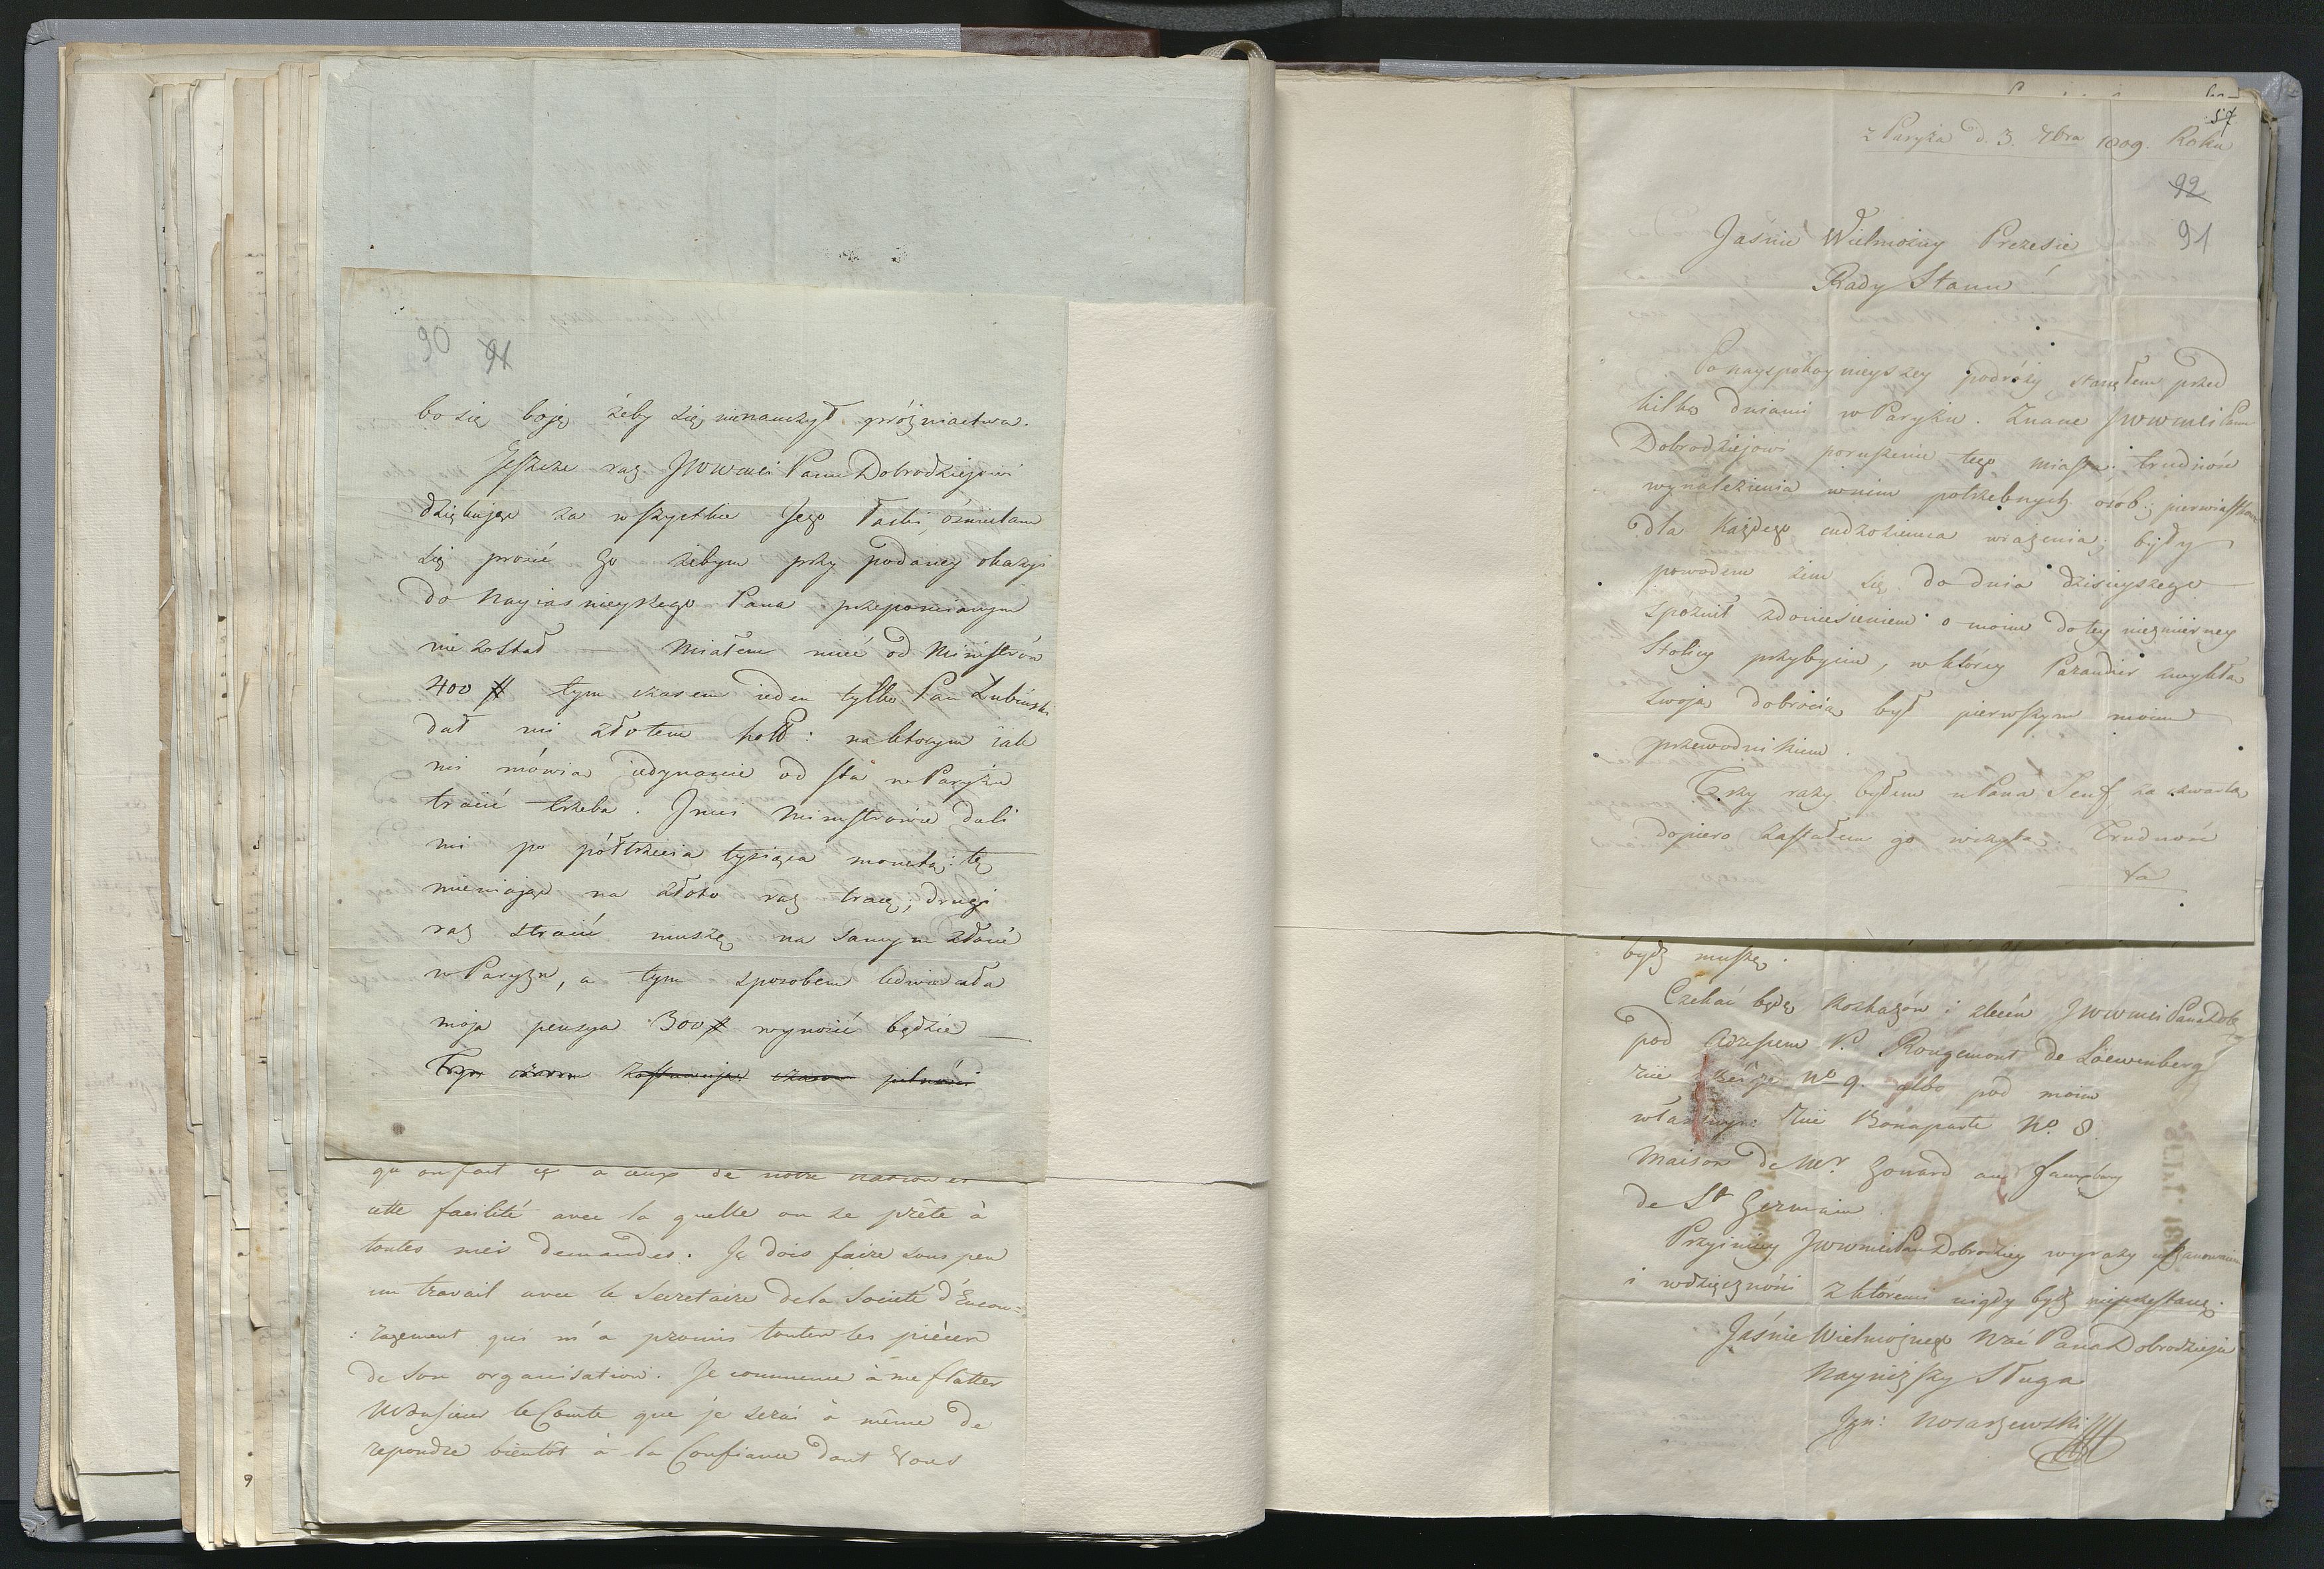 90 91
bo się boję żeby się nienauczył próżniactwa.
Jeszcze raz JWWMci Panu Dobrodziejowi
dziękując za wszystkie Jego łaski ośmielam
się prosić Go żebym przy podaney okazyi
do Nayiaśnieyszego Pana przepomianym
nie został — Miałem mieć od Ministrów
400 # tym czasem ieden tylko Pan Łubiński
dał mi złotem holl: na ktorym iak
mi mówią iedynaście od sta w Paryżu
tracić trzeba. Inni Ministrowie dali
mi po półtrzecia tysiąca monetą: tę
mieniając na złoto raz tracę; drugi
raz stracić muszę na samym złocie
w Paryżu, a tym sposobem ledwie cała
moja pensya 300 # wynosić będzie —
Tym czasem
qu'on fait à ceux de notre nation et
cette facilité avec la quelle on se prête à
toutes mes demandes. Je dois faire sous peu
un travail avec le Secretaire de la Societé d'Encou=
:ragement qui m'a promis toutes les pièces
de son organisation. Je commence à me flatter
Monsieur le Comte que je serai à même de
repondre bientôt à la Confiance dont Vous
57
z Paryża d. 3. 7bra 1809. Roku
92
91
Jaśnie Wielmożny Prezesie
Rady Stanu!
Po nayspokoynieyszey podróży stanęłem przed
kilką dniami w Paryżu. Znane JWWMci Panu
Dobrodziejowi poruszenie tego miasta: trudność
wynalezienia w nim potrzebnych osób; pierwiastkowe
dla każdego cudzoziemca wrażenia; były
powodem żem się do dnia dzisieyszego
spóźnił z doniesieniem o moim do tey niezmierney
Stolicy przybyciu, w którey Parandier zwykłą
swoją dobrocią był pierwszym moim
przewodnikiem.
Trzy razy byłem u Pana Senf, za czwartą
dopiero zastałem go wizytą. Trudność
ta
bydź muszę.
Czekać będę rozkazów i zleceń JWWMci Pana Dob:
pod Adresem P. Rougemont de Löewenberg
rüe No 9. albo pod moim
własnym: Rüe Bonaparte No. 8.
Maison de Mr. Gouard au fauxbourg
de St Germain.
Przyimiy JWWMci Pan Dobrodziey wyrazy uszanowania
i wdzięczności z któremi nigdy bydź nieprzestanę.
Jaśnie Wielmożnego WMci Pana Dobrodzieja
Nayniższy Sługa
Jgn: Nosarzewski